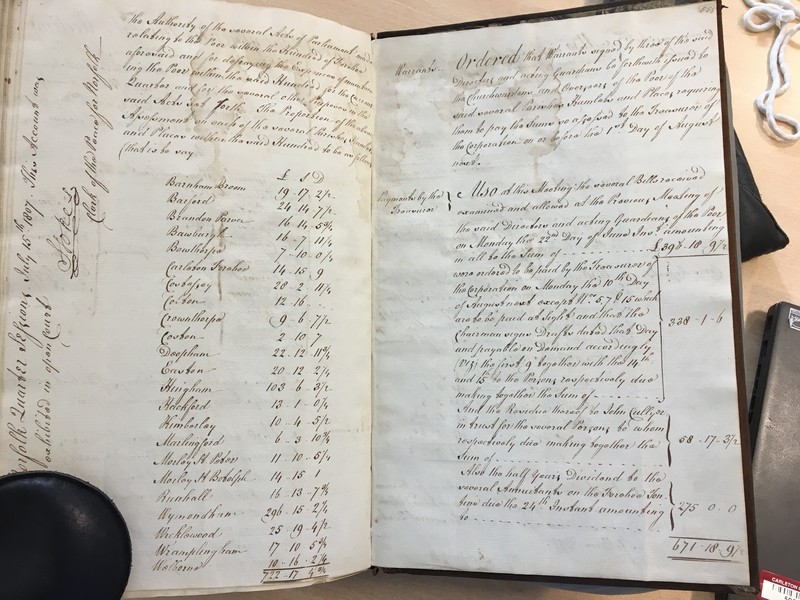 the Authority of the several Acts of Parliament made
relating to the Poor within the Hundred of Forehoe
aforesaid and for defraying the Expences of maintain
ing the Poor within the said Hundred for the Current
Quarter and for the several other Purposes in the
said Acts set forth. The Proportion of the above
Assessment on each of the several Parishes Hamlets
and Places within the said Hundred to be as follows
(that is to say)
£ S D
Barnham Broom 19 - 17 - 2 1/2
Barford 24 14 7 1/2
Brandon Parva 16 - 14 - 5 3/4
Bawburgh 16 - 7 - 11 1/4
Bowthorpe 7 - 10 - 0 1/4
Carleton Forehoe 14 - 15 9
Costessey 28 - 2 11 1/4
Coston 12 - 16 -
Crownthorpe 9 - 6 - 7 1/2
Coston 2 10 7
Deopham 22 - 12 - 11 3/4
Easton 20 - 12 2 1/4
Hingham 103 - 6 - 3 1/2
Hockford 13 - 1 - 0 1/4
Kimberley 10 - 4 - 5 1/2
Marlingford 6 - 3 10 3/4
Morley St. Peters 11 - 10 - 5 1/4
Morley St. Botolph 14 - 15 1
Runhall 16 - 13 - 7 3/4
Wymondham 296 - 15 2 1/4
Wicklewood 25 - 19 - 4 1/2
Wramplingham 17 10 5 3/4
Welborne 10 - 16 - 2 1/4
722 - 17 4 3/4
Norfolk Quarter Sessions July 15th 1807. This Account was
exhibited in open Court
Clerk of the Peace for Norfolk
Warrants. Ordered that Warrants signed by three of the said
Directors and acting Guardians be forthwith issued to
the Churchwardens and Overseers of the Poor of the
said several Parishes Hamlets and Places requiring
them to pay the Sums so assessed to the Treasurer of
the Corporation on or before the 1st Day of August
next.
Payments by the
Treasurer
Also at this Meeting the several Bills received
examined and allowed at the Previous Meeting of
the said Directors and acting Guardians of the Poor
on Monday the 22nd Day of June Inst amounting
in all to the Sum of £396 - 18 9 1/2
were ordered to be paid by the Treasurer of
the Corporation on Monday the 10th Day
of August next except Nos. 5, 7 & 15 which
are to be paid at sight and that the
Chairman signs Drafts dated that Day
and payable on Demand accordingly
(viz) the first 9 together with the 14th
and 15th to the Persons respectively due
making together the Sum of 338 - 1 - 6
And the Residue thereof to John Culley
in trust for the several Persons to whom
respectively due making together the
Sum of 58 - 17 - 3 1/2
Also the half Years Dividend to the
several Annuitants on the Forehoe Ton-
tine due the 24th Instant amounting
to 275 - 0 . 0
671 - 18 9 1/2
CARLETON